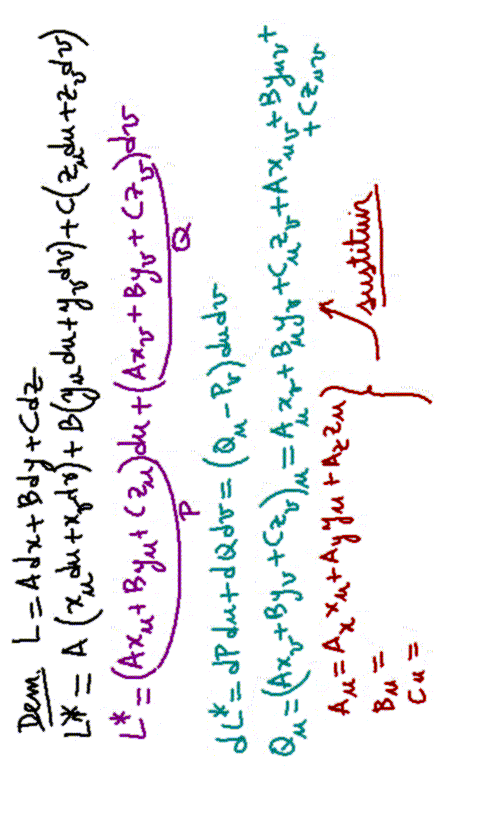 Dem. L = Adx + Bdy + Cdz
L* = A(x_u du + x_v dv) + B(y_u du + y_v dv) + C(z_u du + z_v dv)
L* = (Ax_u + By_u + Cz_u)du + (Ax_v + By_v + Cz_v)dv
P Q
dL* = dPdu + dQdv = (Q_u - P_v)dudv
Q_u = (Ax_v + By_v + Cz_v)_u = A_u x_v + B_u y_v + C_u z_v + Ax_uv + By_uv +
+ Cz_uv
A_u = A_x x_u + A_y y_u + A_z z_u
B_u =
C_u =
sustituir